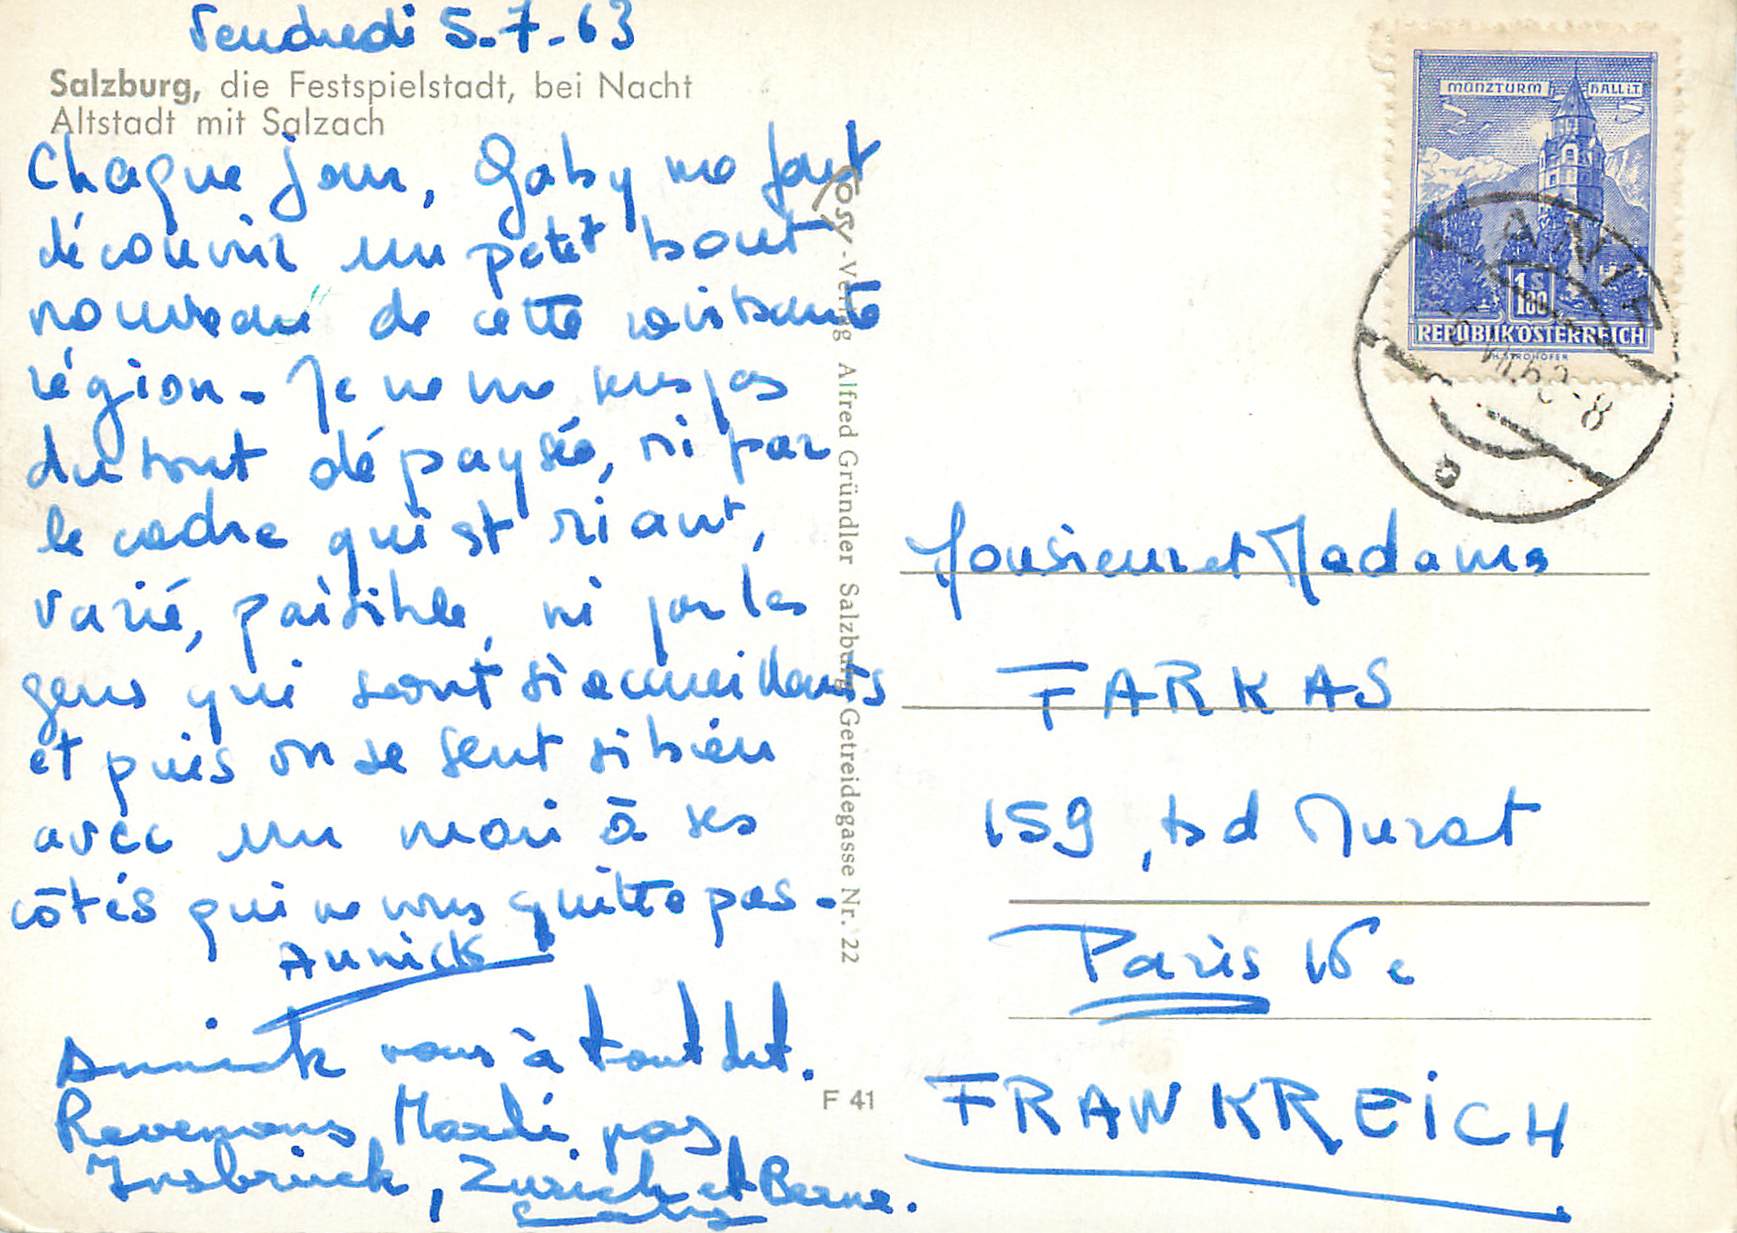 Vendredi 5-7-63
Salzburg, die Festspielstadt, bei Nacht
Altstadt mit Salzach
Chaque jour, Gaby me fait
découvrir un petit bout
nouveau de cette ravissante
région - Je ne me sens pas
du tout dépaysée, ni par
le cadre qui est riant,
varié, paisible, ni par les
gens qui sont si accueillants
et puis on se sent si bien
avec un mari à ses
côtés qui ne vous quitte pas -
Annick
Annick vous a tout dit.
Revenons Mardi par
Insbruck, Zurich et Berne.
Gaby
Cosy-Verlag Alfred Gründler Salzburg, Getreidegasse Nr. 22
F 41
MÜNZTURM HALL i.T.
1.80
REPUBLIK ÖSTERREICH
H. STROHOFER
ANIF
-6.VII.63-8
c
Monsieur et Madame
FARKAS
159, bd Murat
Paris 16e
FRANKREICH